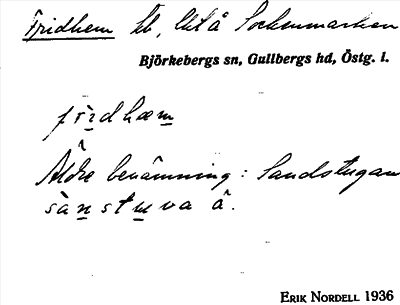 Fridhem lht, Åtå Sockenmarken
Björkebergs sn, Gullbergs hd, Östg. l.
frìdhæm
Äldre benämning: Sandstugan
sànstuva å.
ERIK NORDELL 1936